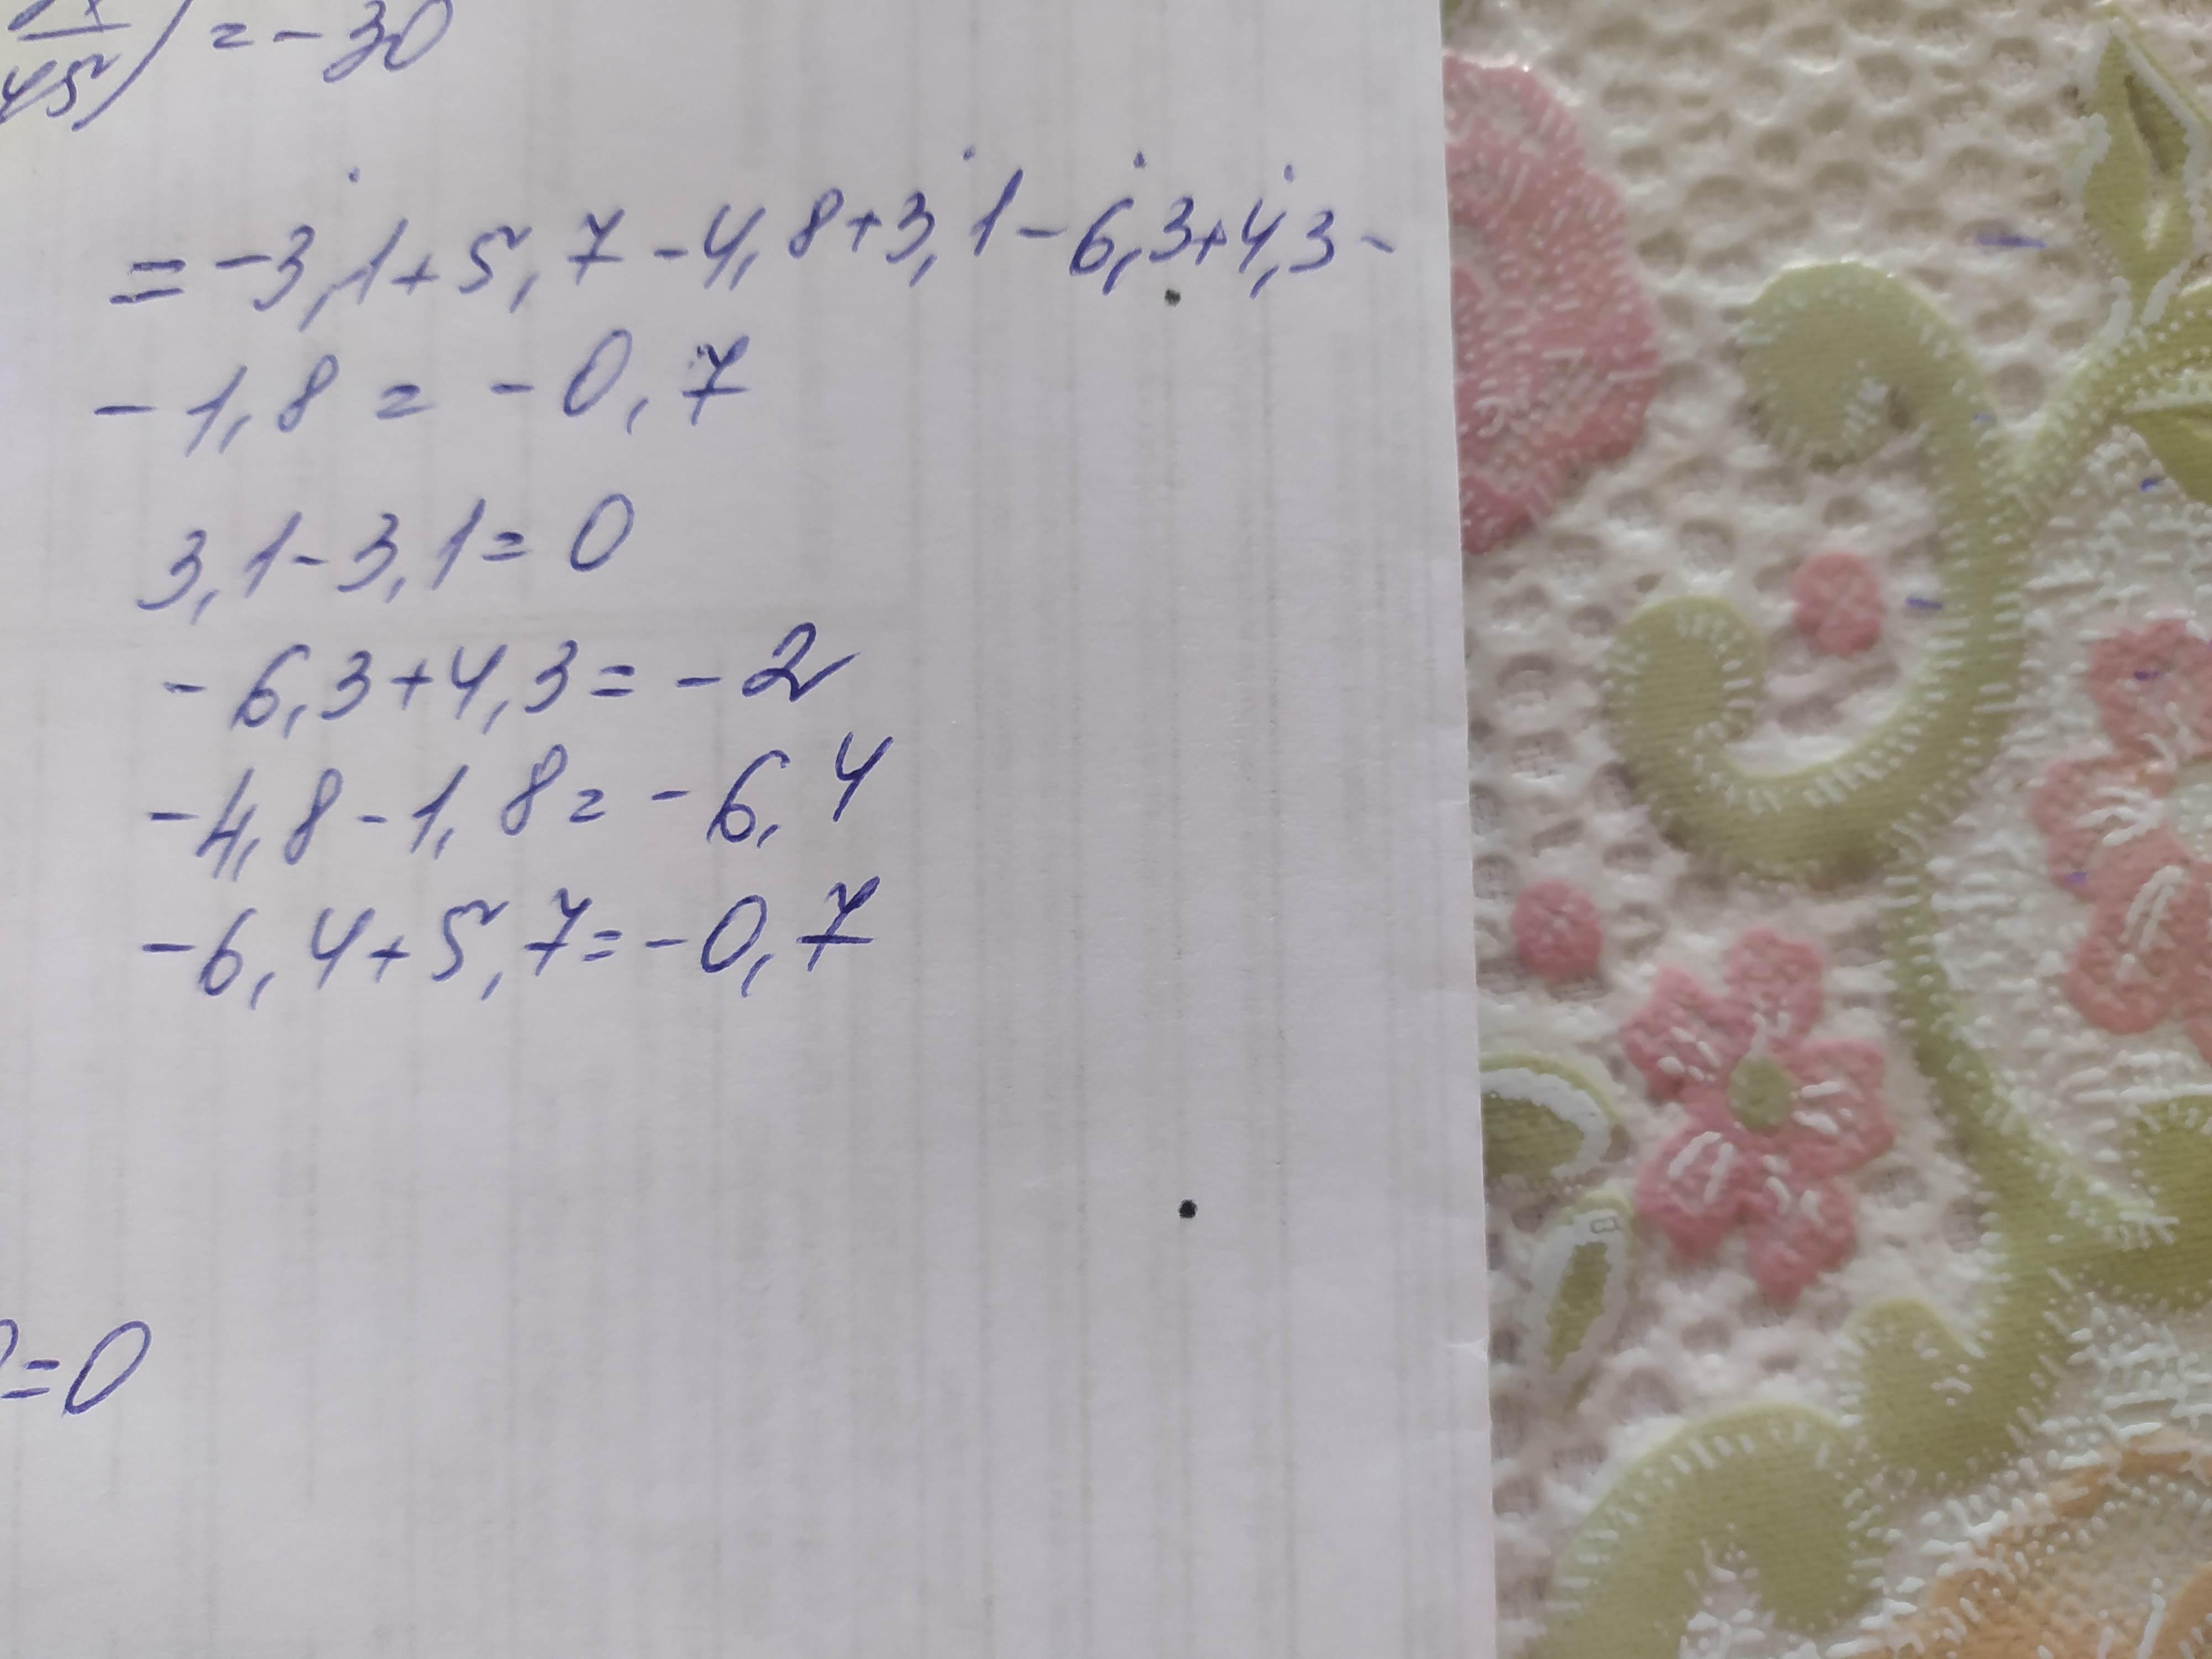 45) = -30
= -3,1 + 5,7 - 4,8 + 3,1 - 6,3 + 4,3 -
- 1,8 = - 0,7
3,1 - 3,1 = 0
- 6,3 + 4,3 = - 2
- 4,8 - 1,8 = - 6,4
- 6,4 + 5,7 = - 0,7
=0